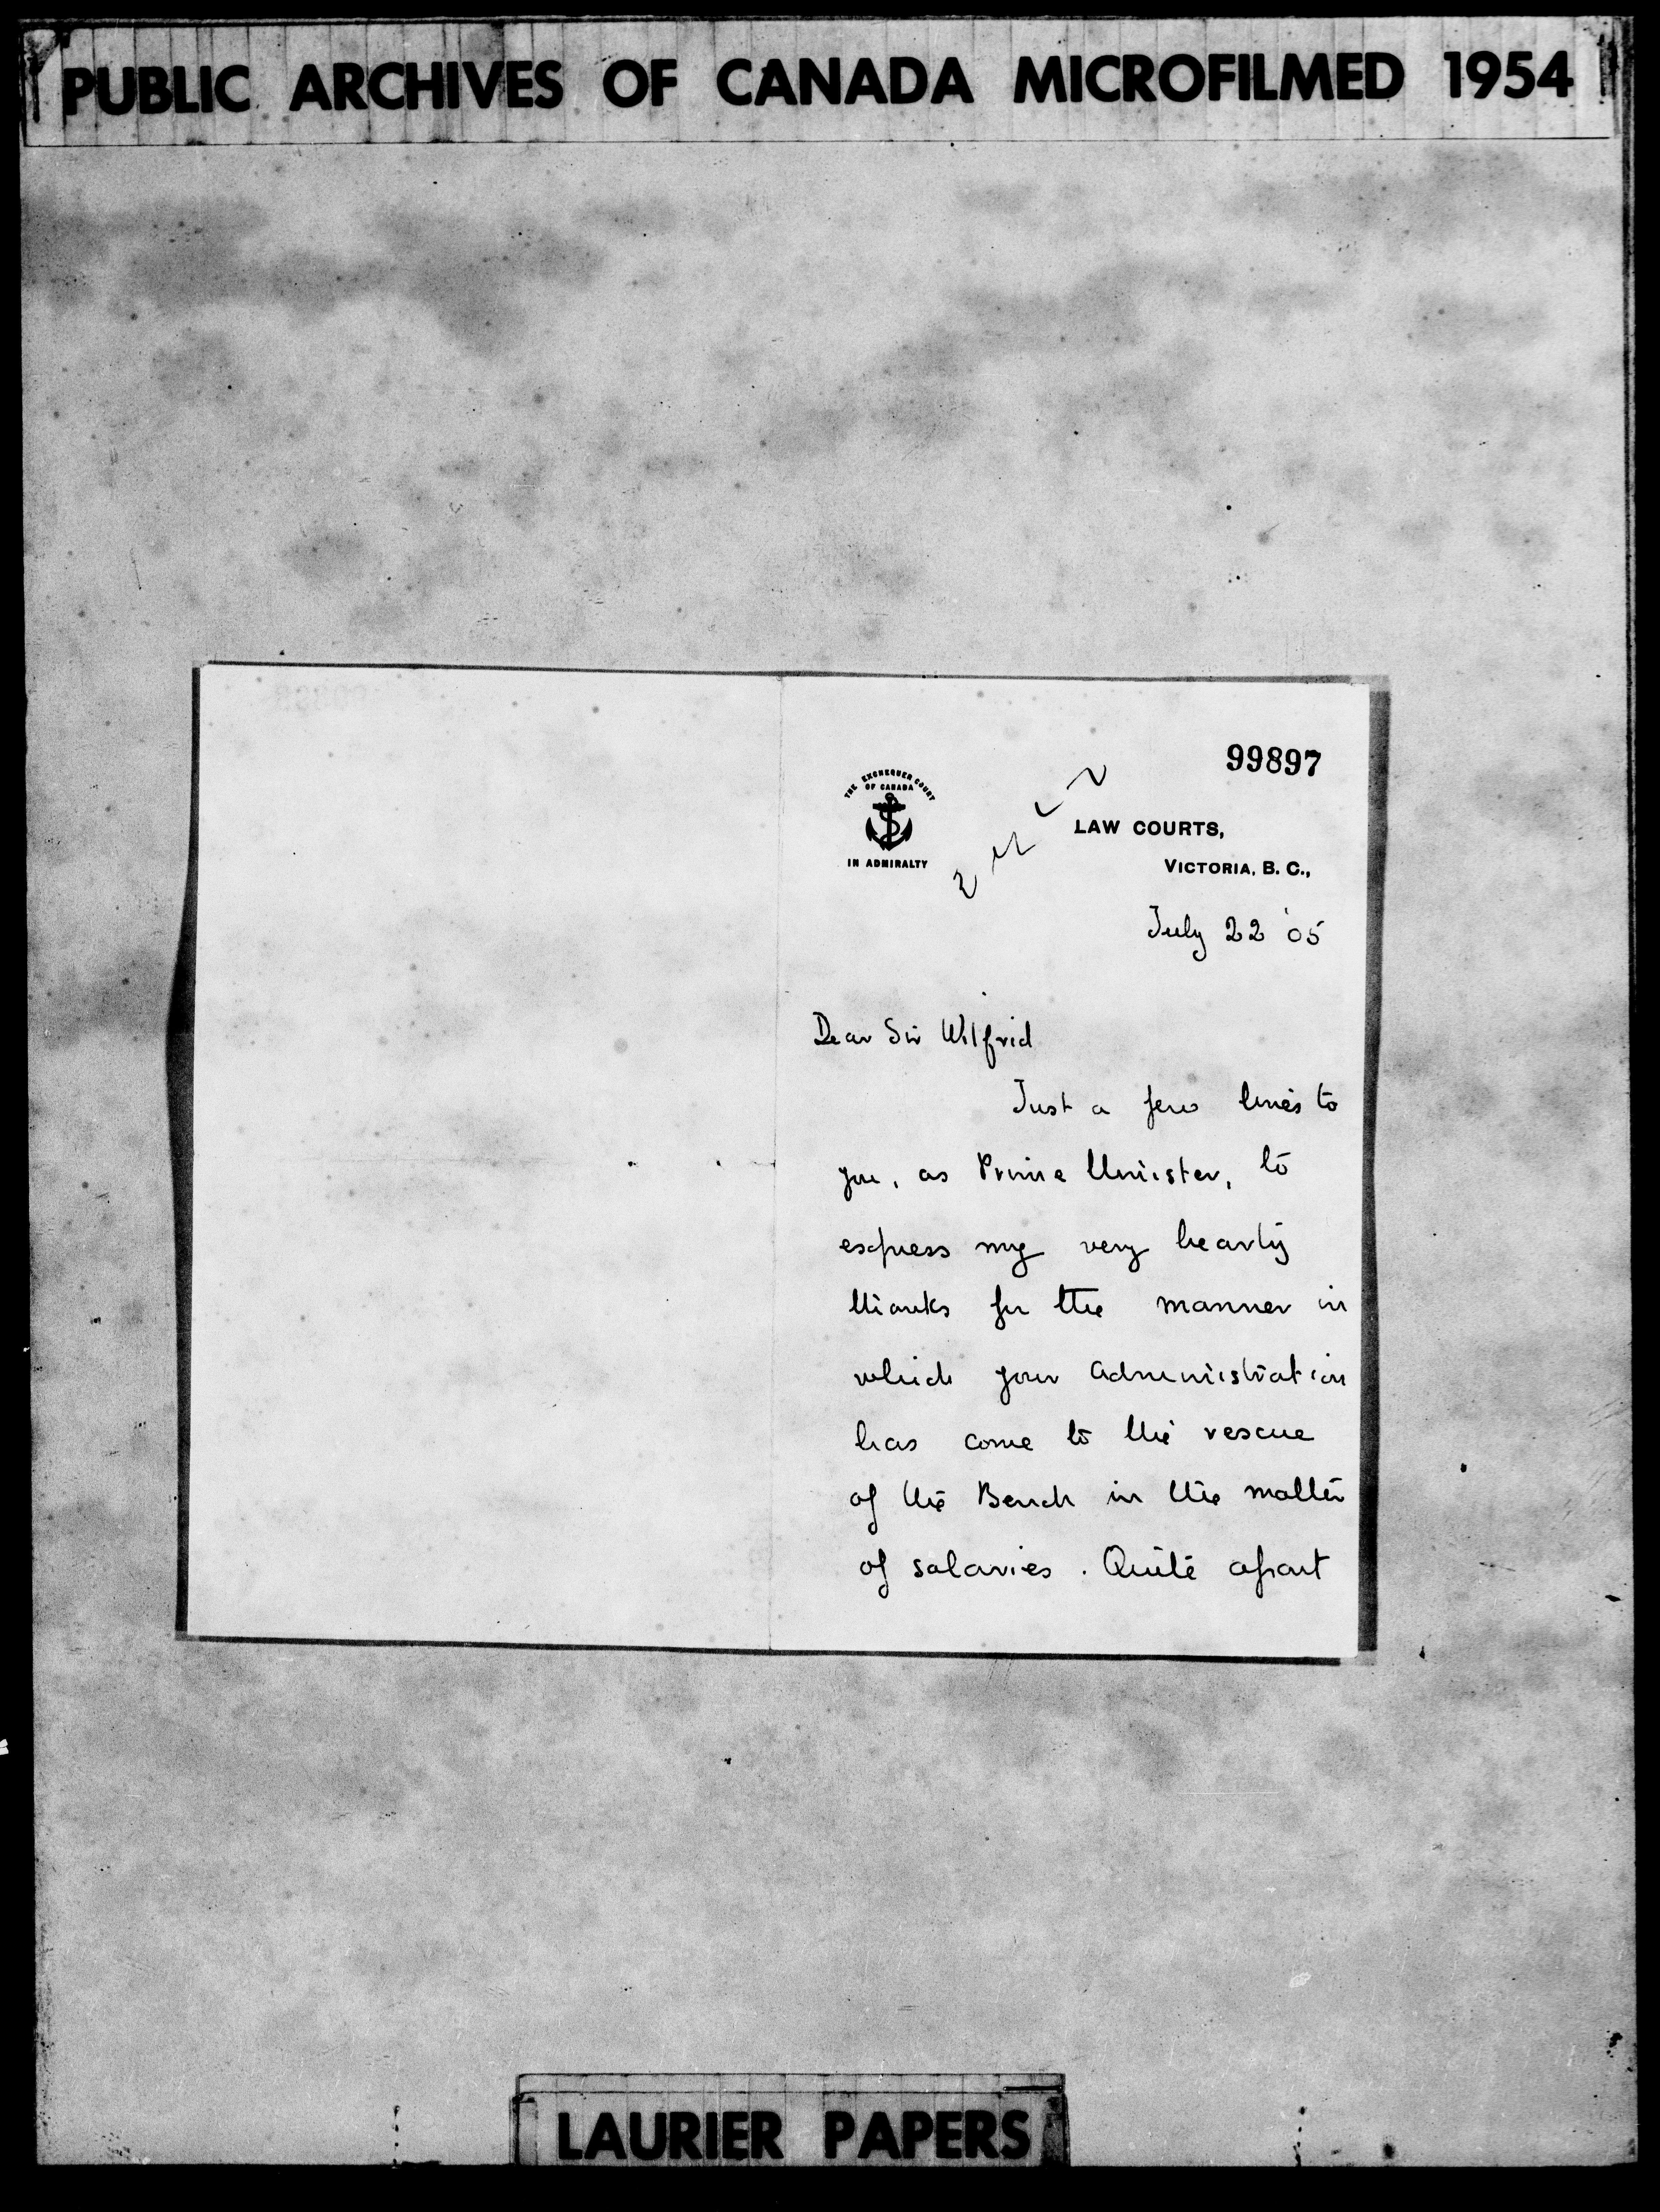 PUBLIC ARCHIVES OF CANADA MICROFILMED 1954
99897
THE EXCHEQUER COURT
OF CANADA
IN ADMIRALTY
LAW COURTS,
VICTORIA, B. C.,
July 22 '05
Dear Sir Wilfrid
Just a few lines to
you, as Prime Minister, to
express my very hearty
thanks for the manner in
which your Administration
has come to the rescue
of the Bench in the matter
of salaries. Quite apart
LAURIER PAPERS